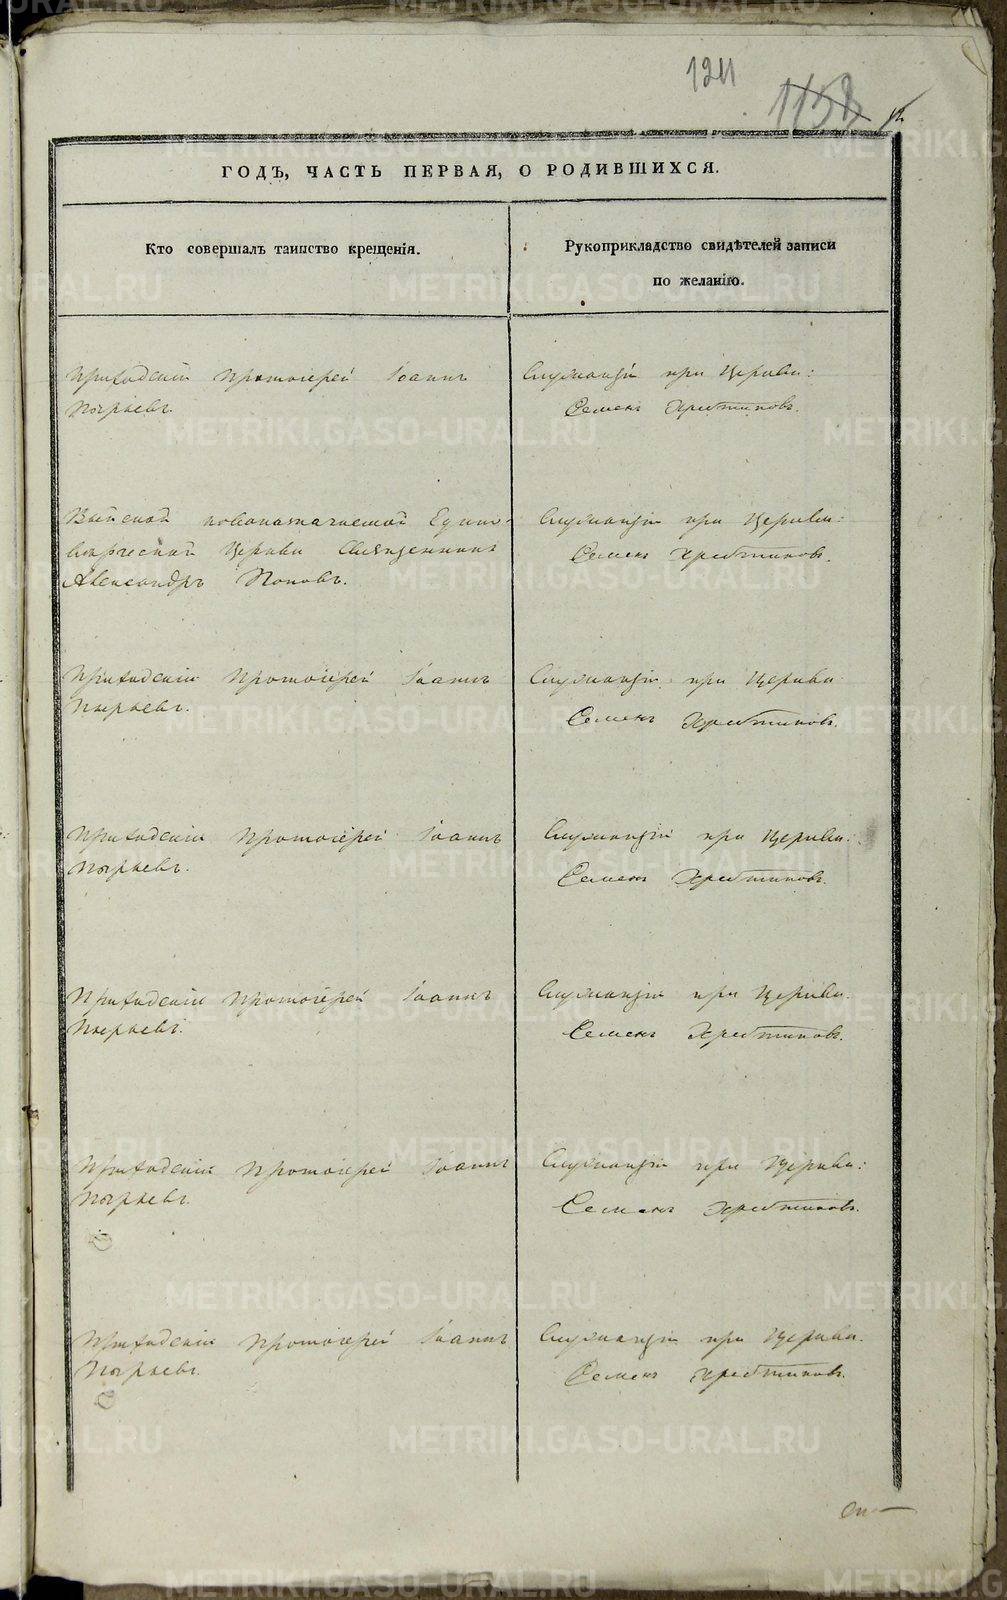 1158
ГОДЪ, ЧАСТЬ ПЕРВАЯ, О РОДИВШИХСЯ.
Кто совершалъ таинство крещенія.
Рукоприкладство свидѣтелей записи
по желанію.
Приходскій Протоіерей Іоаннъ
Пырьевъ.
Служащій при Церкви:
Семенъ Хребтиковъ.
Выйской новоназначаемой Едино-
вѣрческой Церкви Священникъ
Александръ Поповъ.
Служащій при Церкви:
Семенъ Хребтиковъ.
Приходскій Протоіерей Іоаннъ
Пырьевъ.
Служащій при Церкви
Семенъ Хребтиковъ.
Приходскій Протоіерей Іоаннъ
Пырьевъ.
Служащій при Церкви:
Семенъ Хребтиковъ.
Приходскій Протоіерей Іоаннъ
Пырьевъ.
Служащій при Церкви.
Семенъ Хребтиковъ.
Приходскій Протоіерей Іоаннъ
Пырьевъ.
Служащій при Церкви:
Семенъ Хребтиковъ.
Приходскій Протоіерей Іоаннъ
Пырьевъ.
Служащій при Церкви.
Семенъ Хребтиковъ.
METRIKI.GASO-URAL.RU